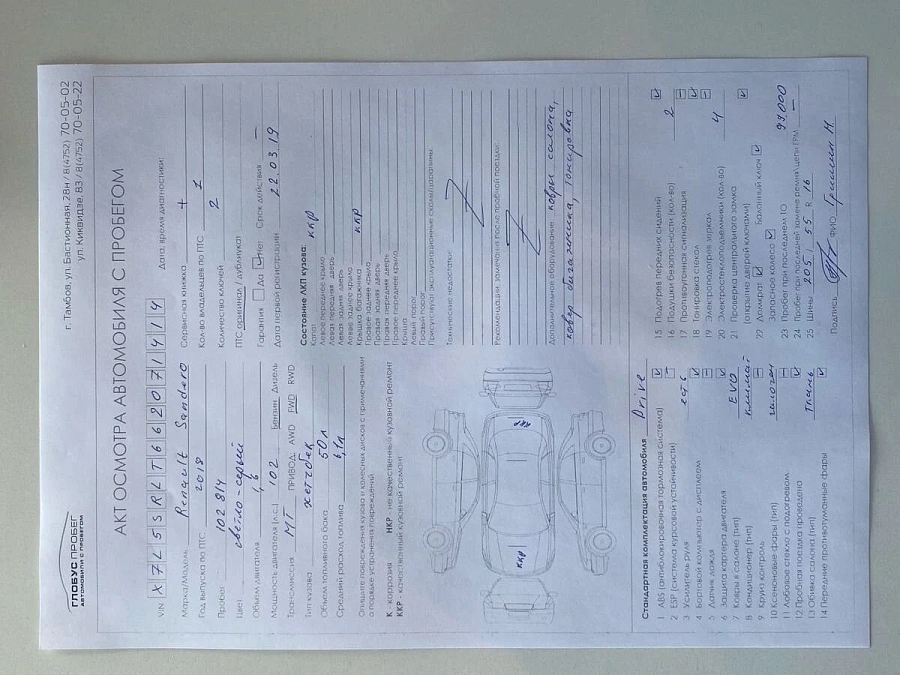 ГЛОБУС ПРОБЕГ
АВТОМОБИЛИ С ПРОБЕГОМ
г. Тамбов, ул. Бастионная, 28н / 8(4752) 70-05-02
ул. Киквидзе, 83 / 8(4752) 70-05-22
АКТ ОСМОТРА АВТОМОБИЛЯ С ПРОБЕГОМ
VIN X7L5SRLT662071414
Дата, время диагностики:
Марка/Модель: Renault Sandero
Год выпуска по ПТС: 2018
Пробег 102 814
Цвет светло-серый
Объем двигателя 1,6
Мощность двигателя (л.с.) 102 Бензин Дизель
Трансмиссия МТ ПРИВОД: AWD FWD RWD
Тип кузова хетчбек
Объем топливного бака 50л
Средний расход топлива
Опишите повреждения кузова и колесных дисков с примечаниями
о порядке устранения повреждений
К - коррозия НКР - не качественный кузовной ремонт
ККР - качественный кузовной ремонт
ккр
ккр
Сервисная книжка +
Кол-во владельцев по ПТС 1
Количество ключей 2
ПТС оригинал / дубликат
Гарантия Да Нет Срок действия —
Дата первой регистрации 22.03.19
Состояние ЛКП кузова:
Капот ккр
Левое переднее крыло
Левая передняя дверь
Левая задняя дверь
Левое заднее крыло
Крышка багажника ккр
Правое заднее крыло
Правая задняя дверь
Правая передняя дверь
Правое переднее крыло
Крыша
Левый порог
Правый порог
Присутствуют эксплуатационные сколы/царапины.
Технические недостатки:
Рекомендации, замечания после пробной поездки:
Дополнительное оборудование: ковры салона,
ковер багажника, тонировка
Стандартная комплектация автомобиля Drive
1 ABS (антиблокировочная тормозная система)
2 ESP (система курсовой устойчивости) —
3 Усилитель руля есть
4 Бортовой компьютер с дисплеем
5 Датчик дождя —
6 Защита картера двигателя
7 Ковры в салоне (тип) EVO
8 Кондиционер (тип) климат
9 Круиз контроль —
10 Ксеноновые фары (тип) галоген
11 Лобовое стекло с подогревом —
12 Пробная поездка проведена
13 Обивка салона (тип) ткань
14 Передние противотуманные фары
15 Подогрев передних сидений
16 Подушки безопасности (кол-во) 2
17 Противоугонная сигнализация —
18 Тонировка стекол
19 Электроподогрев зеркал —
20 Электростеклоподъемники (кол-во) 4
21 Проверка центрального замка
(открытие дверей ключами)
22 Домкрат Балонный ключ
Запасное колесо
23 Пробег при последнем ТО 99000
24 Пробег при последней замене ремня/цепи ГРМ —
25 Шины 205 / 55 R 16
Подпись ФИО Гришин Н